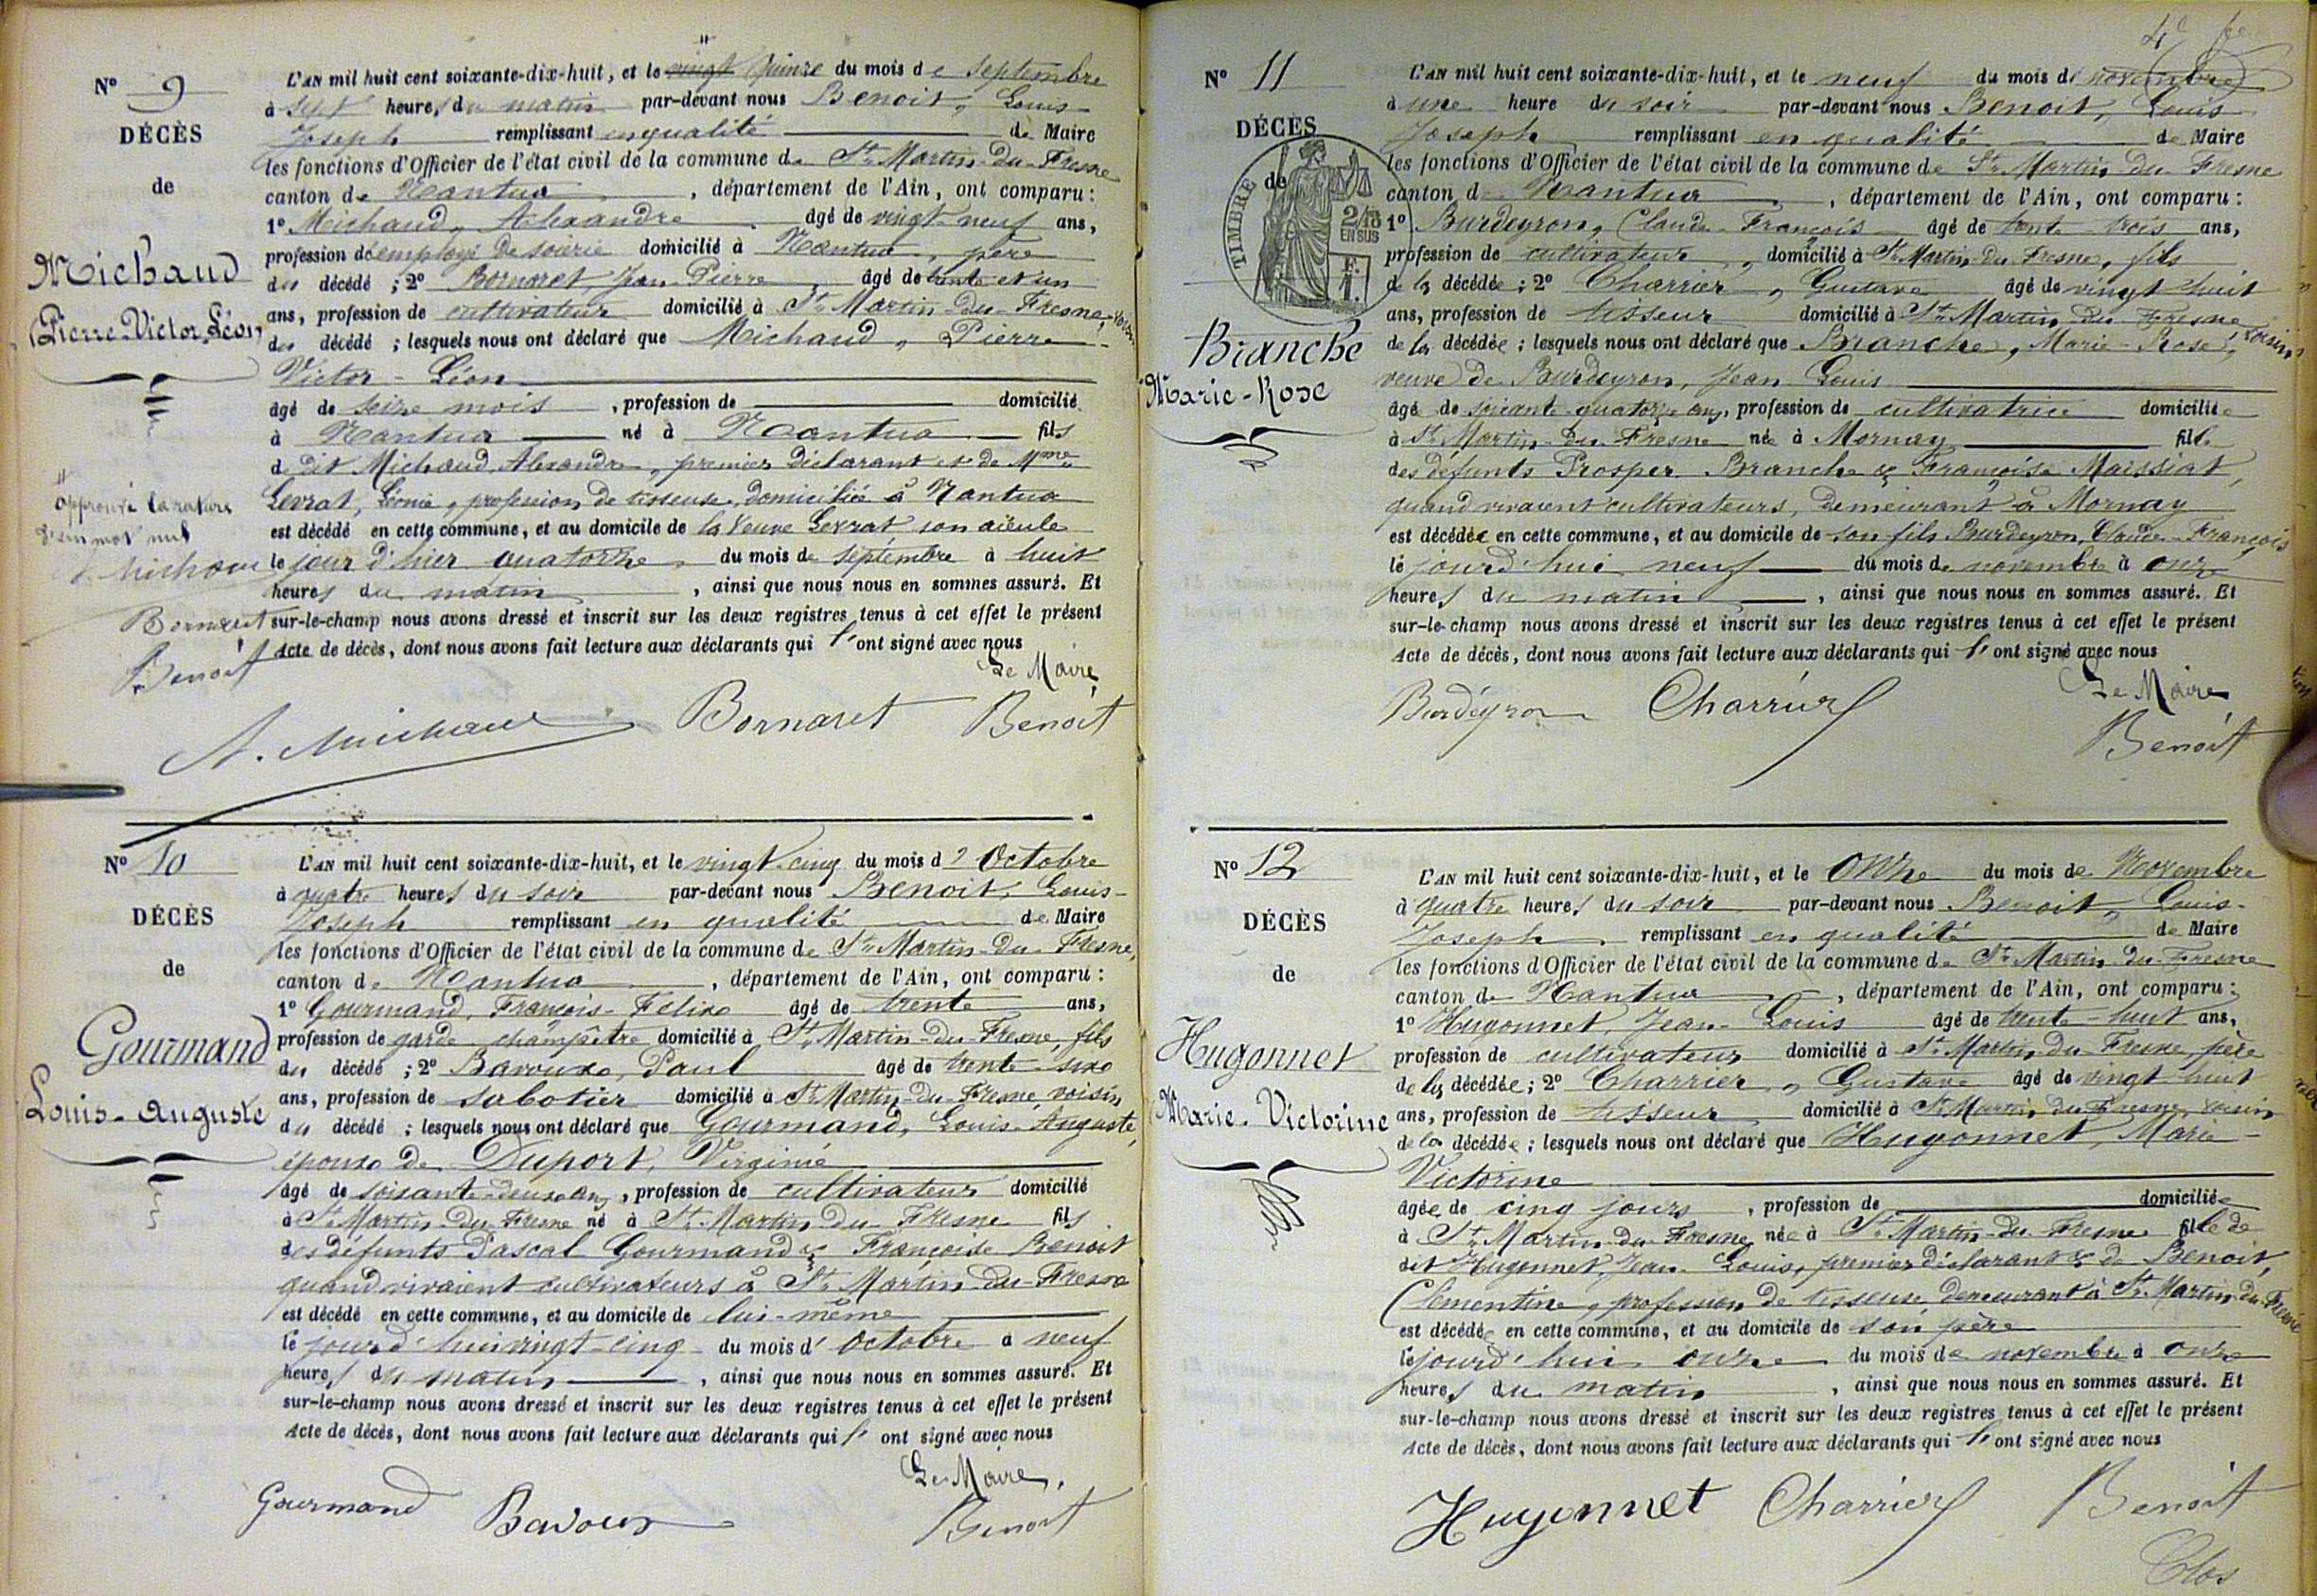 N° 9
DÉCÈS
de
Michaud
Pierre-Victor-Léon
"
approuvé la rature
d'un mot nul
A. Michaud
Bornaret
Benoît
"
L'AN mil huit cent soixante-dix-huit, et le vingt quinze du mois de septembre
à sept heures du matin par-devant nous Benoit, Louis-
Joseph remplissant en qualité de Maire
les fonctions d'Officier de l'état civil de la commune de St Martin-du-Fresne
canton de Nantua, département de l'Ain, ont comparu :
1° Michaud, Alexandre âgé de vingt-neuf ans,
profession d'employé de soierie domicilié à Nantua, père
du décédé ; 2° Bornaret, Jean Pierre âgé de trente et un
ans, profession de cultivateur domicilié à St Martin-du-Fresne, voisin
du décédé ; lesquels nous ont déclaré que Michaud, Pierre-
Victor-Léon
âgé de seize mois, profession de domicilié
à Nantua né à Nantua fils
de dit Michaud Alexandre, premier déclarant & de Mme
Levrat, Léonie, profession de tisseuse, domiciliée à Nantua
est décédé en cette commune, et au domicile de la Veuve Levrat son aïeule
le jour d'hier quatorze du mois de septembre à huit
heures du matin, ainsi que nous nous en sommes assuré. Et
sur-le-champ nous avons dressé et inscrit sur les deux registres tenus à cet effet le présent
Acte de décès, dont nous avons fait lecture aux déclarants qui l'ont signé avec nous
Le Maire
A. Michaud Bornaret Benoît
N° 10
DÉCÈS
de
Gourmand
Louis-Auguste
L'AN mil huit cent soixante-dix-huit, et le vingt-cinq du mois d'Octobre
à quatre heures du soir par-devant nous Benoit, Louis-
Joseph remplissant en qualité de Maire
les fonctions d'Officier de l'état civil de la commune de St Martin-du-Fresne,
canton de Nantua, département de l'Ain, ont comparu :
1° Gourmand, François-Félix âgé de trente ans,
profession de garde champêtre domicilié à St Martin-du-Fresne, fils
du décédé ; 2° Baroux, Paul âgé de trente-six
ans, profession de sabotier domicilié à St Martin-du-Fresne, voisin
du décédé ; lesquels nous ont déclaré que Gourmand, Louis-Auguste,
époux de Duport, Virginie
âgé de soixante-deux ans, profession de cultivateur domicilié
à St Martin-du-Fresne né à St Martin-du-Fresne fils
des défunts Pascal Gourmand & Françoise Benoit
quand vivaient cultivateurs à St Martin-du-Fresne
est décédé en cette commune, et au domicile de lui-même
le jourd'hui vingt-cinq du mois d'Octobre à neuf
heures du matin, ainsi que nous nous en sommes assuré. Et
sur-le-champ nous avons dressé et inscrit sur les deux registres tenus à cet effet le présent
Acte de décès, dont nous avons fait lecture aux déclarants qui l'ont signé avec nous
Le Maire,
Gourmand Baroux Benoît
4e fe
N° 11
DÉCÈS
de
TIMBRE
2/10 EN SUS
Branche
Marie-Rose
L'AN mil huit cent soixante-dix-huit, et le neuf du mois de novembre
à une heure du soir par-devant nous Benoit, Louis
Joseph remplissant en qualité de Maire
les fonctions d'Officier de l'état civil de la commune de St Martin-du-Fresne
canton de Nantua, département de l'Ain, ont comparu :
1° Burdeyron, Claude-François âgé de trente-trois ans,
profession de cultivateur, domicilié à St Martin-du-Fresne, fils
de la décédée ; 2° Charrier, Gustave âgé de vingt-huit
ans, profession de tisseur domicilié à St Martin-du-Fresne, voisin
de la décédée ; lesquels nous ont déclaré que Branche, Marie-Rose,
veuve de Burdeyron, Jean Louis
âgé de soixante-quatorze ans, profession de cultivatrice domiciliée
à St Martin-du-Fresne née à Mornay fille
des défunts Prosper Branche & Françoise Maissiat,
quand vivaient cultivateurs, demeurant à Mornay
est décédée en cette commune, et au domicile de son fils Burdeyron, Claude-François
le jourd'hui neuf du mois de novembre à onze
heures du matin, ainsi que nous nous en sommes assuré. Et
sur-le-champ nous avons dressé et inscrit sur les deux registres tenus à cet effet le présent
Acte de décès, dont nous avons fait lecture aux déclarants qui l'ont signé avec nous
Le Maire
Burdéyron Charrier Benoît
N° 12
DÉCÈS
de
Hugonnet
Marie-Victorine
L'AN mil huit cent soixante-dix-huit, et le onze du mois de Novembre
à quatre heures du soir par-devant nous Benoit, Louis-
Joseph remplissant en qualité de Maire
les fonctions d'Officier de l'état civil de la commune de St Martin-du-Fresne
canton de Nantua, département de l'Ain, ont comparu :
1° Hugonnet, Jean-Louis âgé de trente-huit ans,
profession de cultivateur domicilié à St Martin-du-Fresne, père
de la décédée ; 2° Charrier, Gustave âgé de vingt-huit
ans, profession de tisseur domicilié à St Martin-du-Fresne, voisin
de la décédée ; lesquels nous ont déclaré que Hugonnet, Marie-
Victorine
âgée de cinq jours, profession de domiciliée
à St Martin-du-Fresne née à St Martin-du-Fresne fille de
dit Hugonnet, Jean-Louis, premier déclarant & de Benoit,
Clémentine, profession de tisseuse, demeurant à St Martin-du-Fresne
est décédée en cette commune, et au domicile de son père
le jourd'hui onze du mois de novembre à onze
heures du matin, ainsi que nous nous en sommes assuré. Et
sur-le-champ nous avons dressé et inscrit sur les deux registres tenus à cet effet le présent
Acte de décès, dont nous avons fait lecture aux déclarants qui l'ont signé avec nous
Hugonnet Charrier Benoît
Clos